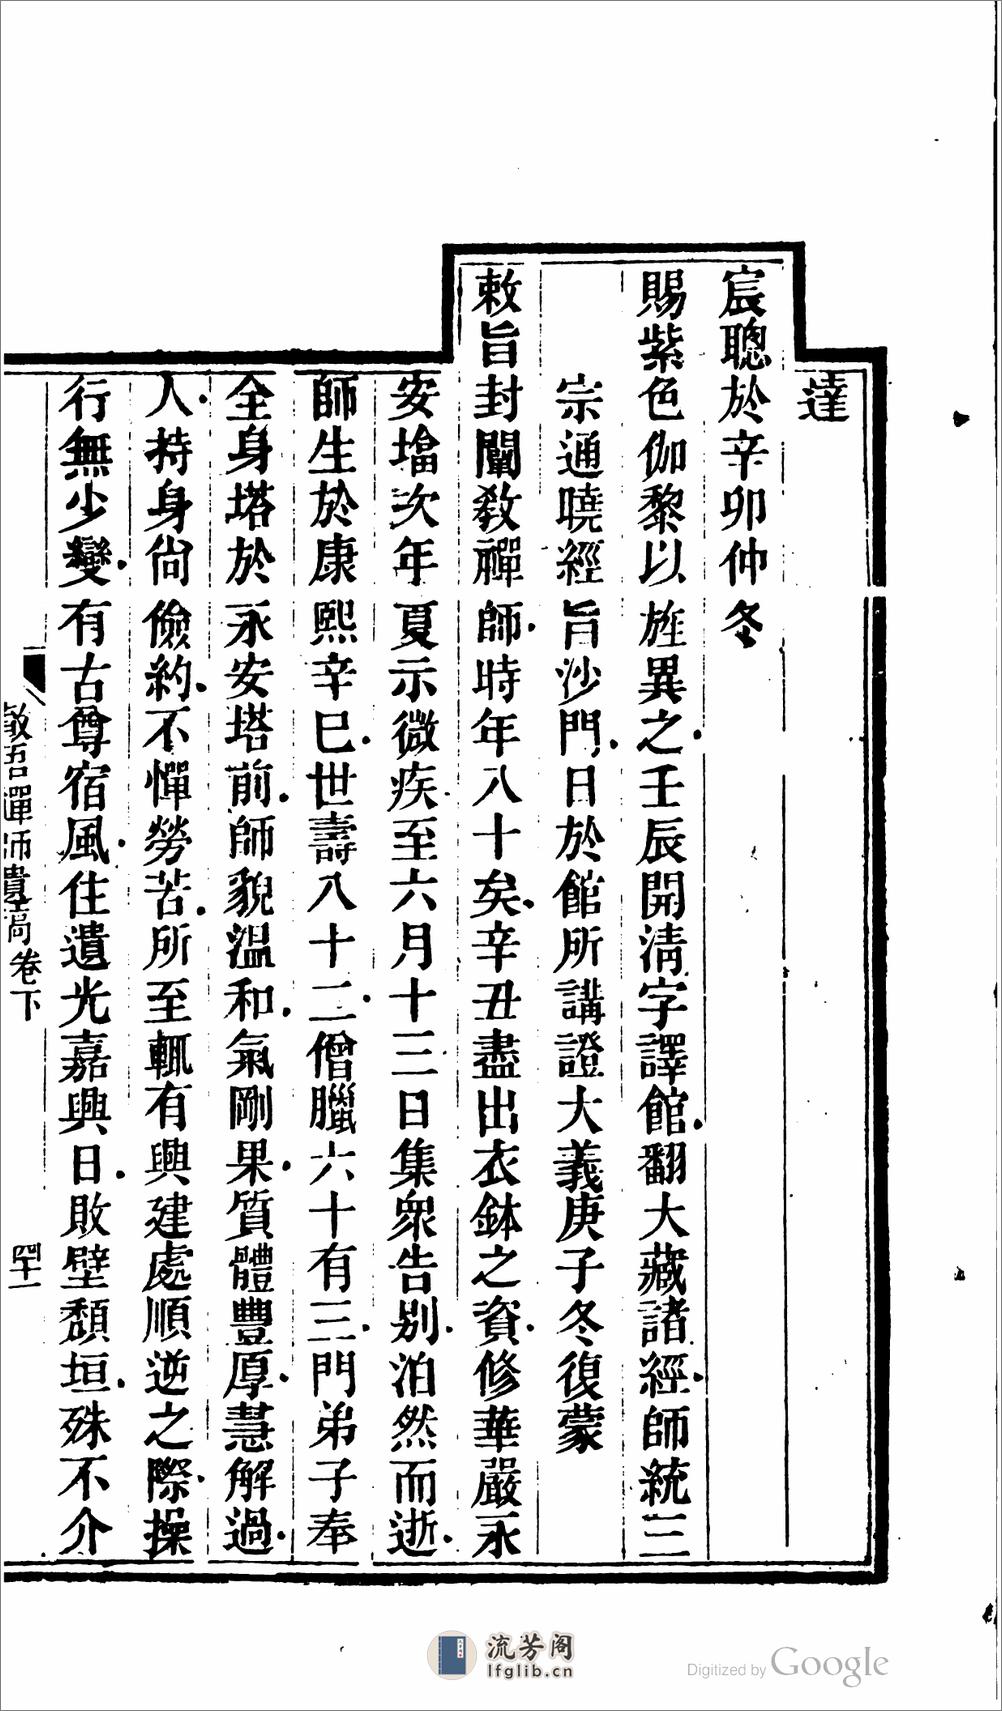 達
宸聰於辛卯仲冬
賜紫色伽黎以旌異之壬辰開淸字譯館翻大藏諸經師統三
宗通曉經旨沙門日於館所講證大義庚子冬復蒙
敕旨封闡教禪師時年八十矣辛丑盡出衣鉢之資修華嚴永
安塔次年夏示微疾至六月十三日集衆告别泊然而逝
師生於康熙辛巳世壽八十二僧臘六十有三門弟子奉
全身塔於永安塔前師貌温和氣剛果質體豐厚慧解過
人持身尙儉約不憚勞苦所至輒有興建處順逆之際操
行無少變有古尊宿風住遺光嘉興日敗壁頽垣殊不介
敏吾禪師遺稿卷下
四十一
流芳阁
lfglib.cn
Digitized by Google